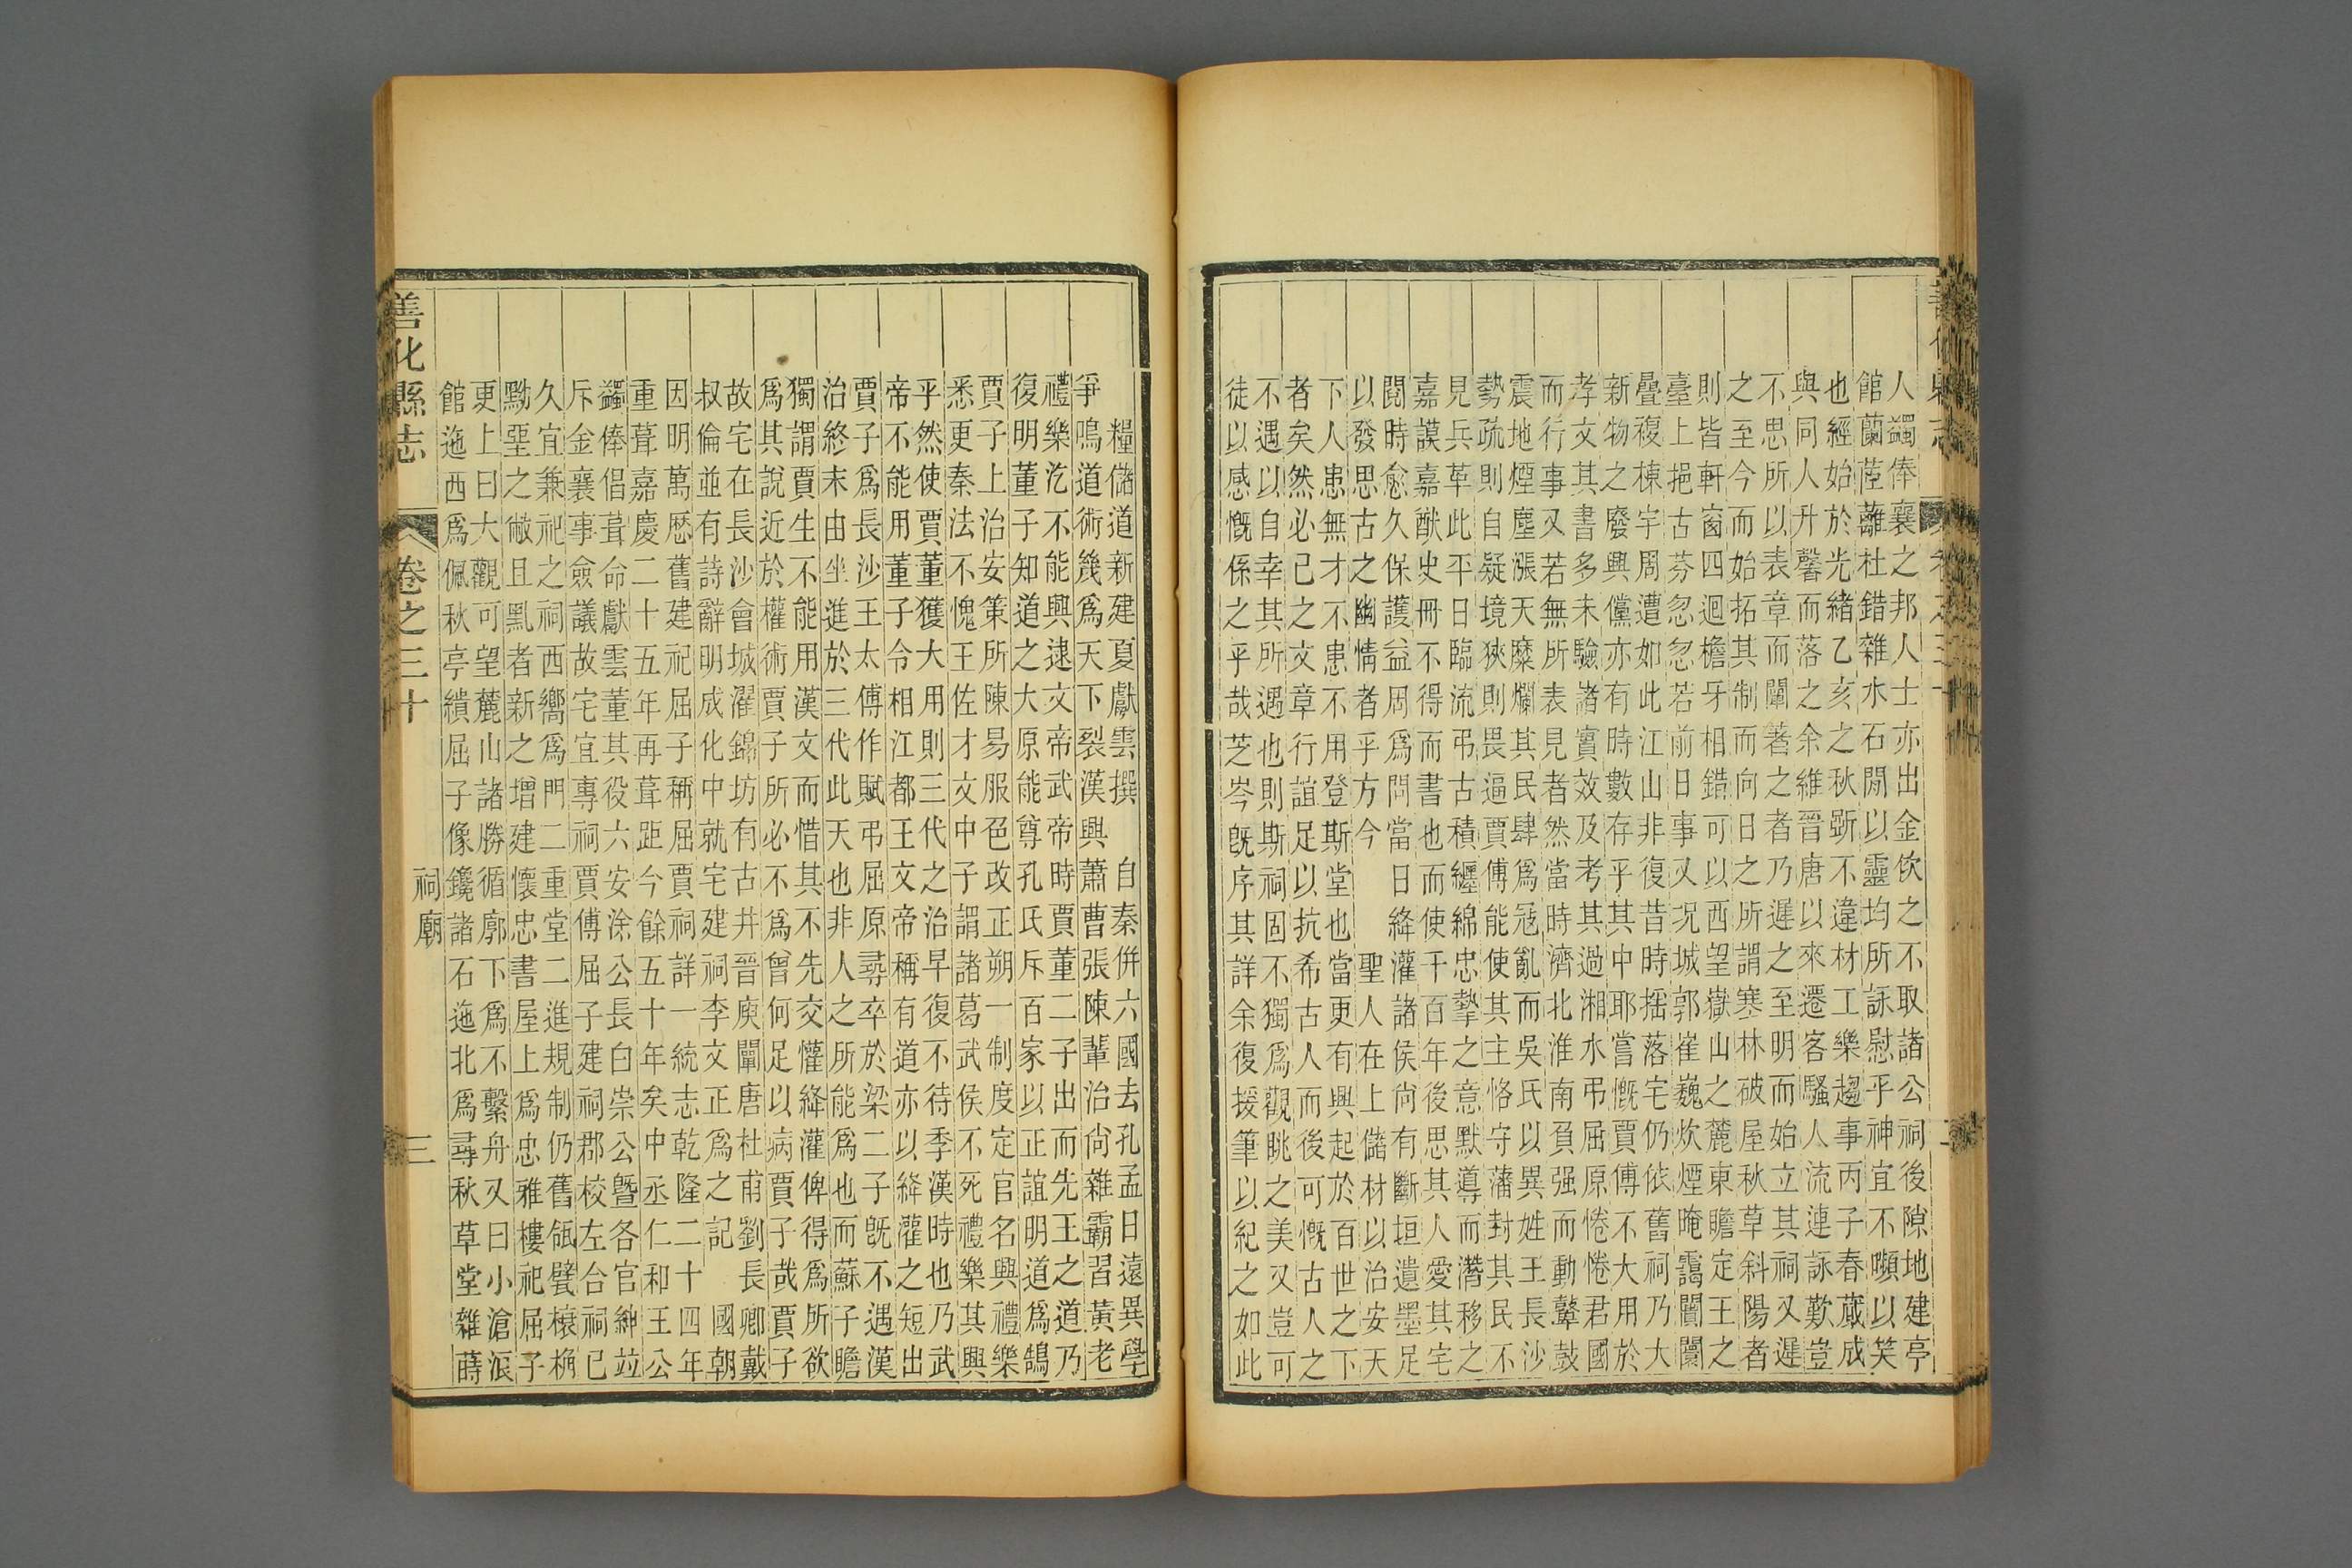 人蠲俸襄之邦人士亦出金佽之不取諸公祠後隙地建亭
館蘭茝離杜錯雜水石閒以靈均所詠慰乎神宜不嚬以笑
也經始於光緒乙亥之秋斲不違材工樂趨事丙子春蕆成
與同人升馨而落之余維晉唐以來遷客騷人流連詠歎豈
不思所以表章而闡著之者乃遲之至明而始立其祠又遲
之至今而始拓其制而向日之所謂寒林破屋秋草斜陽者
則皆軒窗四迴檐牙相錯可以西望嶽山之麓東瞻定王之
臺上挹古芬忽忽若前日事又况城郭崔巍炊煙晻靄闤闠
疊複棟宇周遭如此江山非復昔時搖落宅仍依舊祠乃大
新物之廢興儻亦有時數存乎其中耶嘗慨賈傅不大用於
孝文其書多未驗諸實效及考其過湘水弔屈原惓惓君國
而行事又若無所表見者然當時濟北淮南負强而動鼙鼓
震地煙塵漲天糜爛其民肆爲冦亂而吳氏以異姓王長沙
勢疏則自疑境狹則畏逼賈傅能使其主恪守藩封其民不
見兵革此平日臨流弔古積纏綿忠摯之意默導而潛移之
嘉謨嘉猷史冊不得而書也而使千百年後思其人愛其宅
閱時愈久保護益周爲問當日絳灌諸侯尚有斷垣遺墨足
以發思古之幽情者乎方今 聖人在上儲材以治安天
下人患無才不患不用登斯堂也當更有興起於百世之下
者矣然必己之文章行誼足以抗希古人而後可慨古人之
不遇以自幸其所遇也則斯祠固不獨爲觀眺之美又豈可
徒以感慨係之乎哉芝岑旣序其詳余復援筆以紀之如此
糧儲道新建夏獻雲撰 自秦併六國去孔孟日遠異學
爭鳴道術幾爲天下裂漢興蕭曹張陳輩治尙雜霸習黃老
禮樂汔不能興逮文帝武帝時賈董二子出而先王之道乃
復明董子知道之大原能尊孔氏斥百家以正誼明道爲鵠
賈子上治安策所陳易服色改正朔一制度定官名興禮樂
悉更秦法不愧王佐才文中子謂諸葛武侯不死禮樂其興
乎然使賈董獲大用則三代之治早復不待季漢時也乃武
帝不能用董子令相江都王文帝稱有道亦以絳灌之短出
賈子爲長沙王太傅作賦弔屈原尋卒於梁二子旣不遇漢
治終未由坐進於三代此天也非人之所能爲也而蘇子瞻
獨謂賈生不能用漢文而惜其不先交懽絳灌俾得爲所欲
爲其說近於權術賈子所必不爲曾何足以病賈子哉賈子
故宅在長沙會城濯錦坊有古井晉庾闡唐杜甫劉長卿戴
叔倫並有詩辭明成化中就宅建祠李文正爲之記 國朝
因明萬歷舊建祀屈子稱屈賈祠詳一統志乾隆二十四年
重葺嘉慶二十五年再葺距今餘五十年矣中丞仁和王公
蠲俸倡葺命獻雲董其役六安涂公長白崇公曁各官紳竝
斥金襄事僉議故宅宜專祠賈傅屈子建祠郡校左合祠已
久宜兼祀之祠西嚮爲門二重堂二進規制仍舊瓴甓榱桷
黝堊之敝且黑者新之增建懷忠書屋上爲忠雅樓祀屈子
更上曰大觀可望麓山諸勝循廓下爲不繫舟又曰小滄浪
館迤西爲佩秋亭繢屈子像鑱諸石迤北爲尋秋草堂雜蒔
善化縣志 卷之三十 祠廟 三